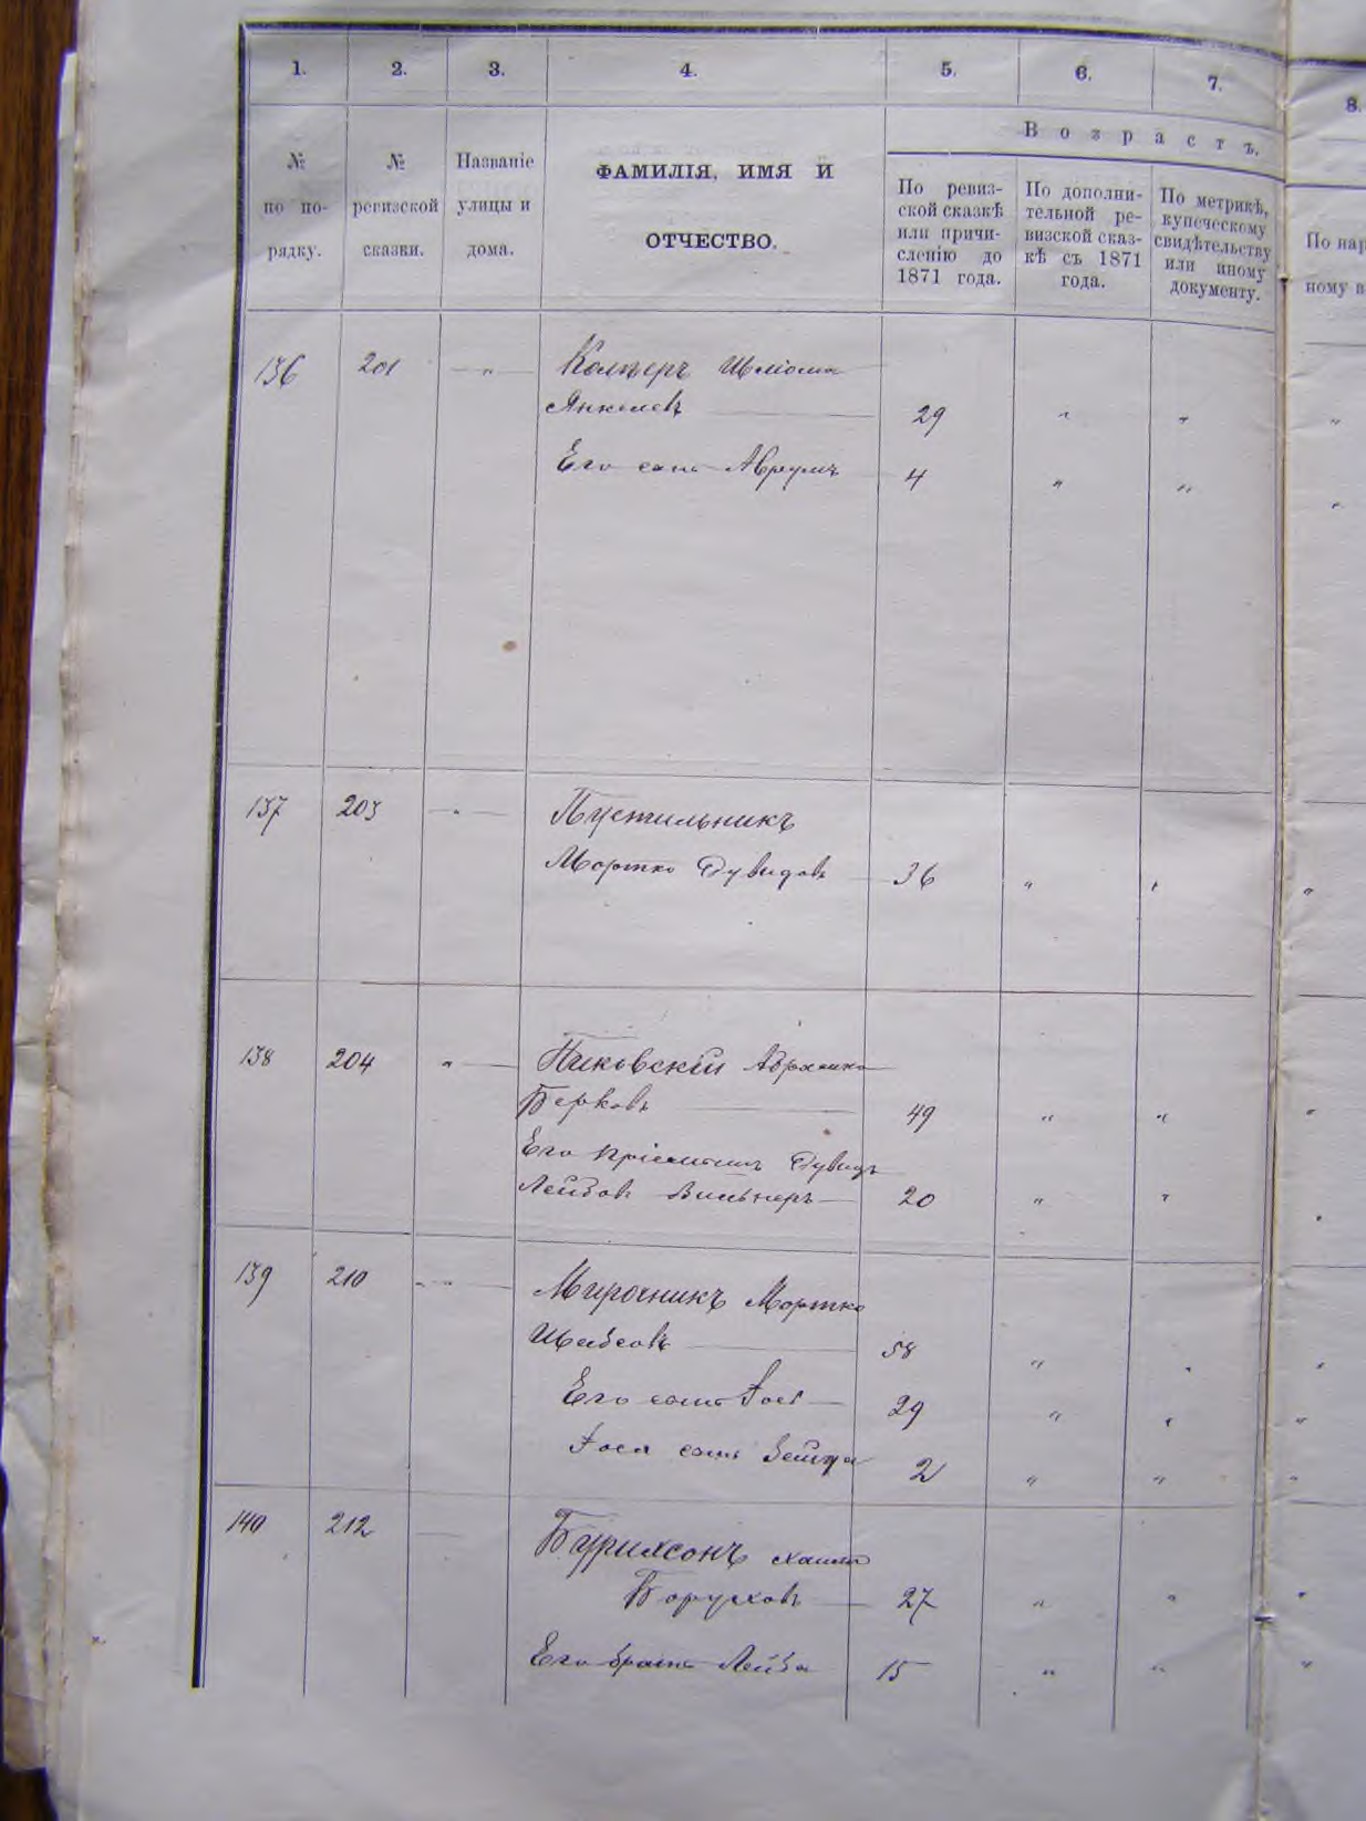 1. 2. 3. 4. 5. 6. 7. 8.
Возрастъ.
№ по порядку.
№ ревизской сказки.
Названіе улицы и дома.
ФАМИЛІЯ, ИМЯ И ОТЧЕСТВО.
По ревиз-
ской сказкѣ
или причи-
сленію до
1871 года.
По дополни-
тельной ре-
визской сказ-
кѣ съ 1871
года.
По метрикѣ,
купеческому
свидѣтельству
или иному
документу.
По нар
ному в
136 201 — „ — Шліома
Янкелевъ 29 „ „ „
Его сынъ Аврумъ 4 „ „ „
137 203 — „ — Пустильникъ
Мортко Дувидовъ 36 „ „ „
138 204 „ — Пиковскій Абрамко
Берковъ 49 „ „ „
Его пріемышъ Дувидъ
Лейбовъ Вильнеръ 20 „ „ „
139 210 „ — Мирочникъ Мортко
58 „ „ „
Его сынъ Іось 29 „ „ „
Іося сынъ 2 „ „ „
140 212 — Хаимъ
Боруховъ 27 „ „ „
Его братъ Лейба 15 „ „ „